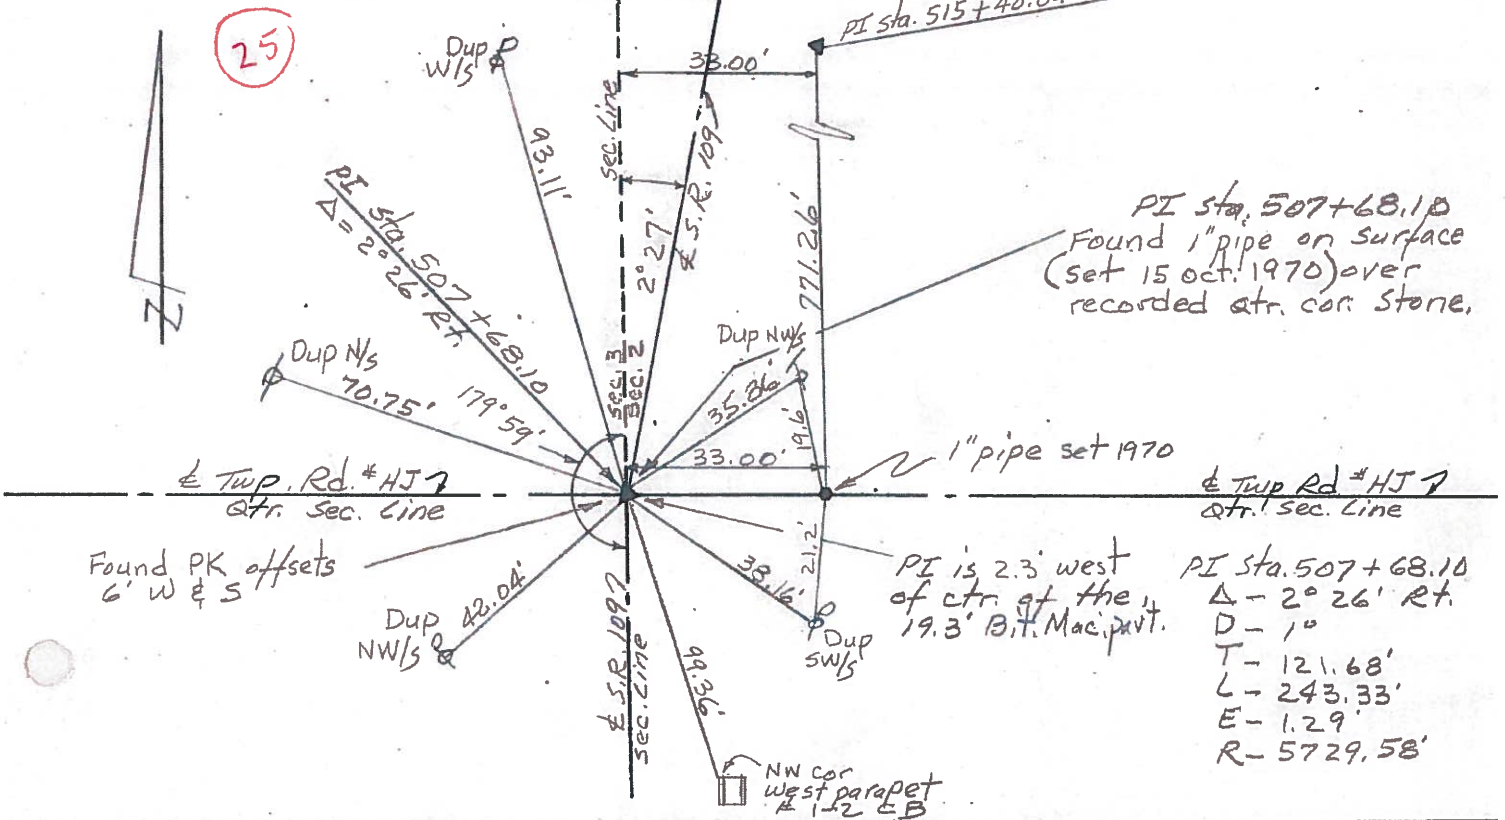 25
Dup
W/s
93.11'
sec. Line
33.00'
PI sta. 515+40.
℄ S.R. 109
2° 27'
PI sta. 507+68.10
Δ = 2° 26' Rt.
771.26'
PI sta. 507+68.10
Found 1" pipe on surface
(set 15 oct. 1970) over
recorded qtr. cor. stone.
N
Dup N/s
70.75'
179° 59'
Sec. 3
Sec. 2
Dup NW/s
35.86'
19.6'
33.00'
1" pipe set 1970
℄ Twp. Rd. #HJ
Qtr. Sec. Line
℄ Twp Rd. #HJ
Qtr. Sec. Line
Found PK offsets
6' W & S
Dup
NW/s
42.04'
℄ S.R. 109
Sec. Line
99.36'
38.16'
21.2'
Dup
SW/s
PI is 2.3' west
of ctr. of the
19.3' Bit. Mac. pavt.
PI Sta. 507+68.10
Δ - 2° 26' Rt.
D - 1°
T - 121.68'
L - 243.33'
E - 1.29'
R - 5729.58'
NW cor
west parapet
1-2 CB